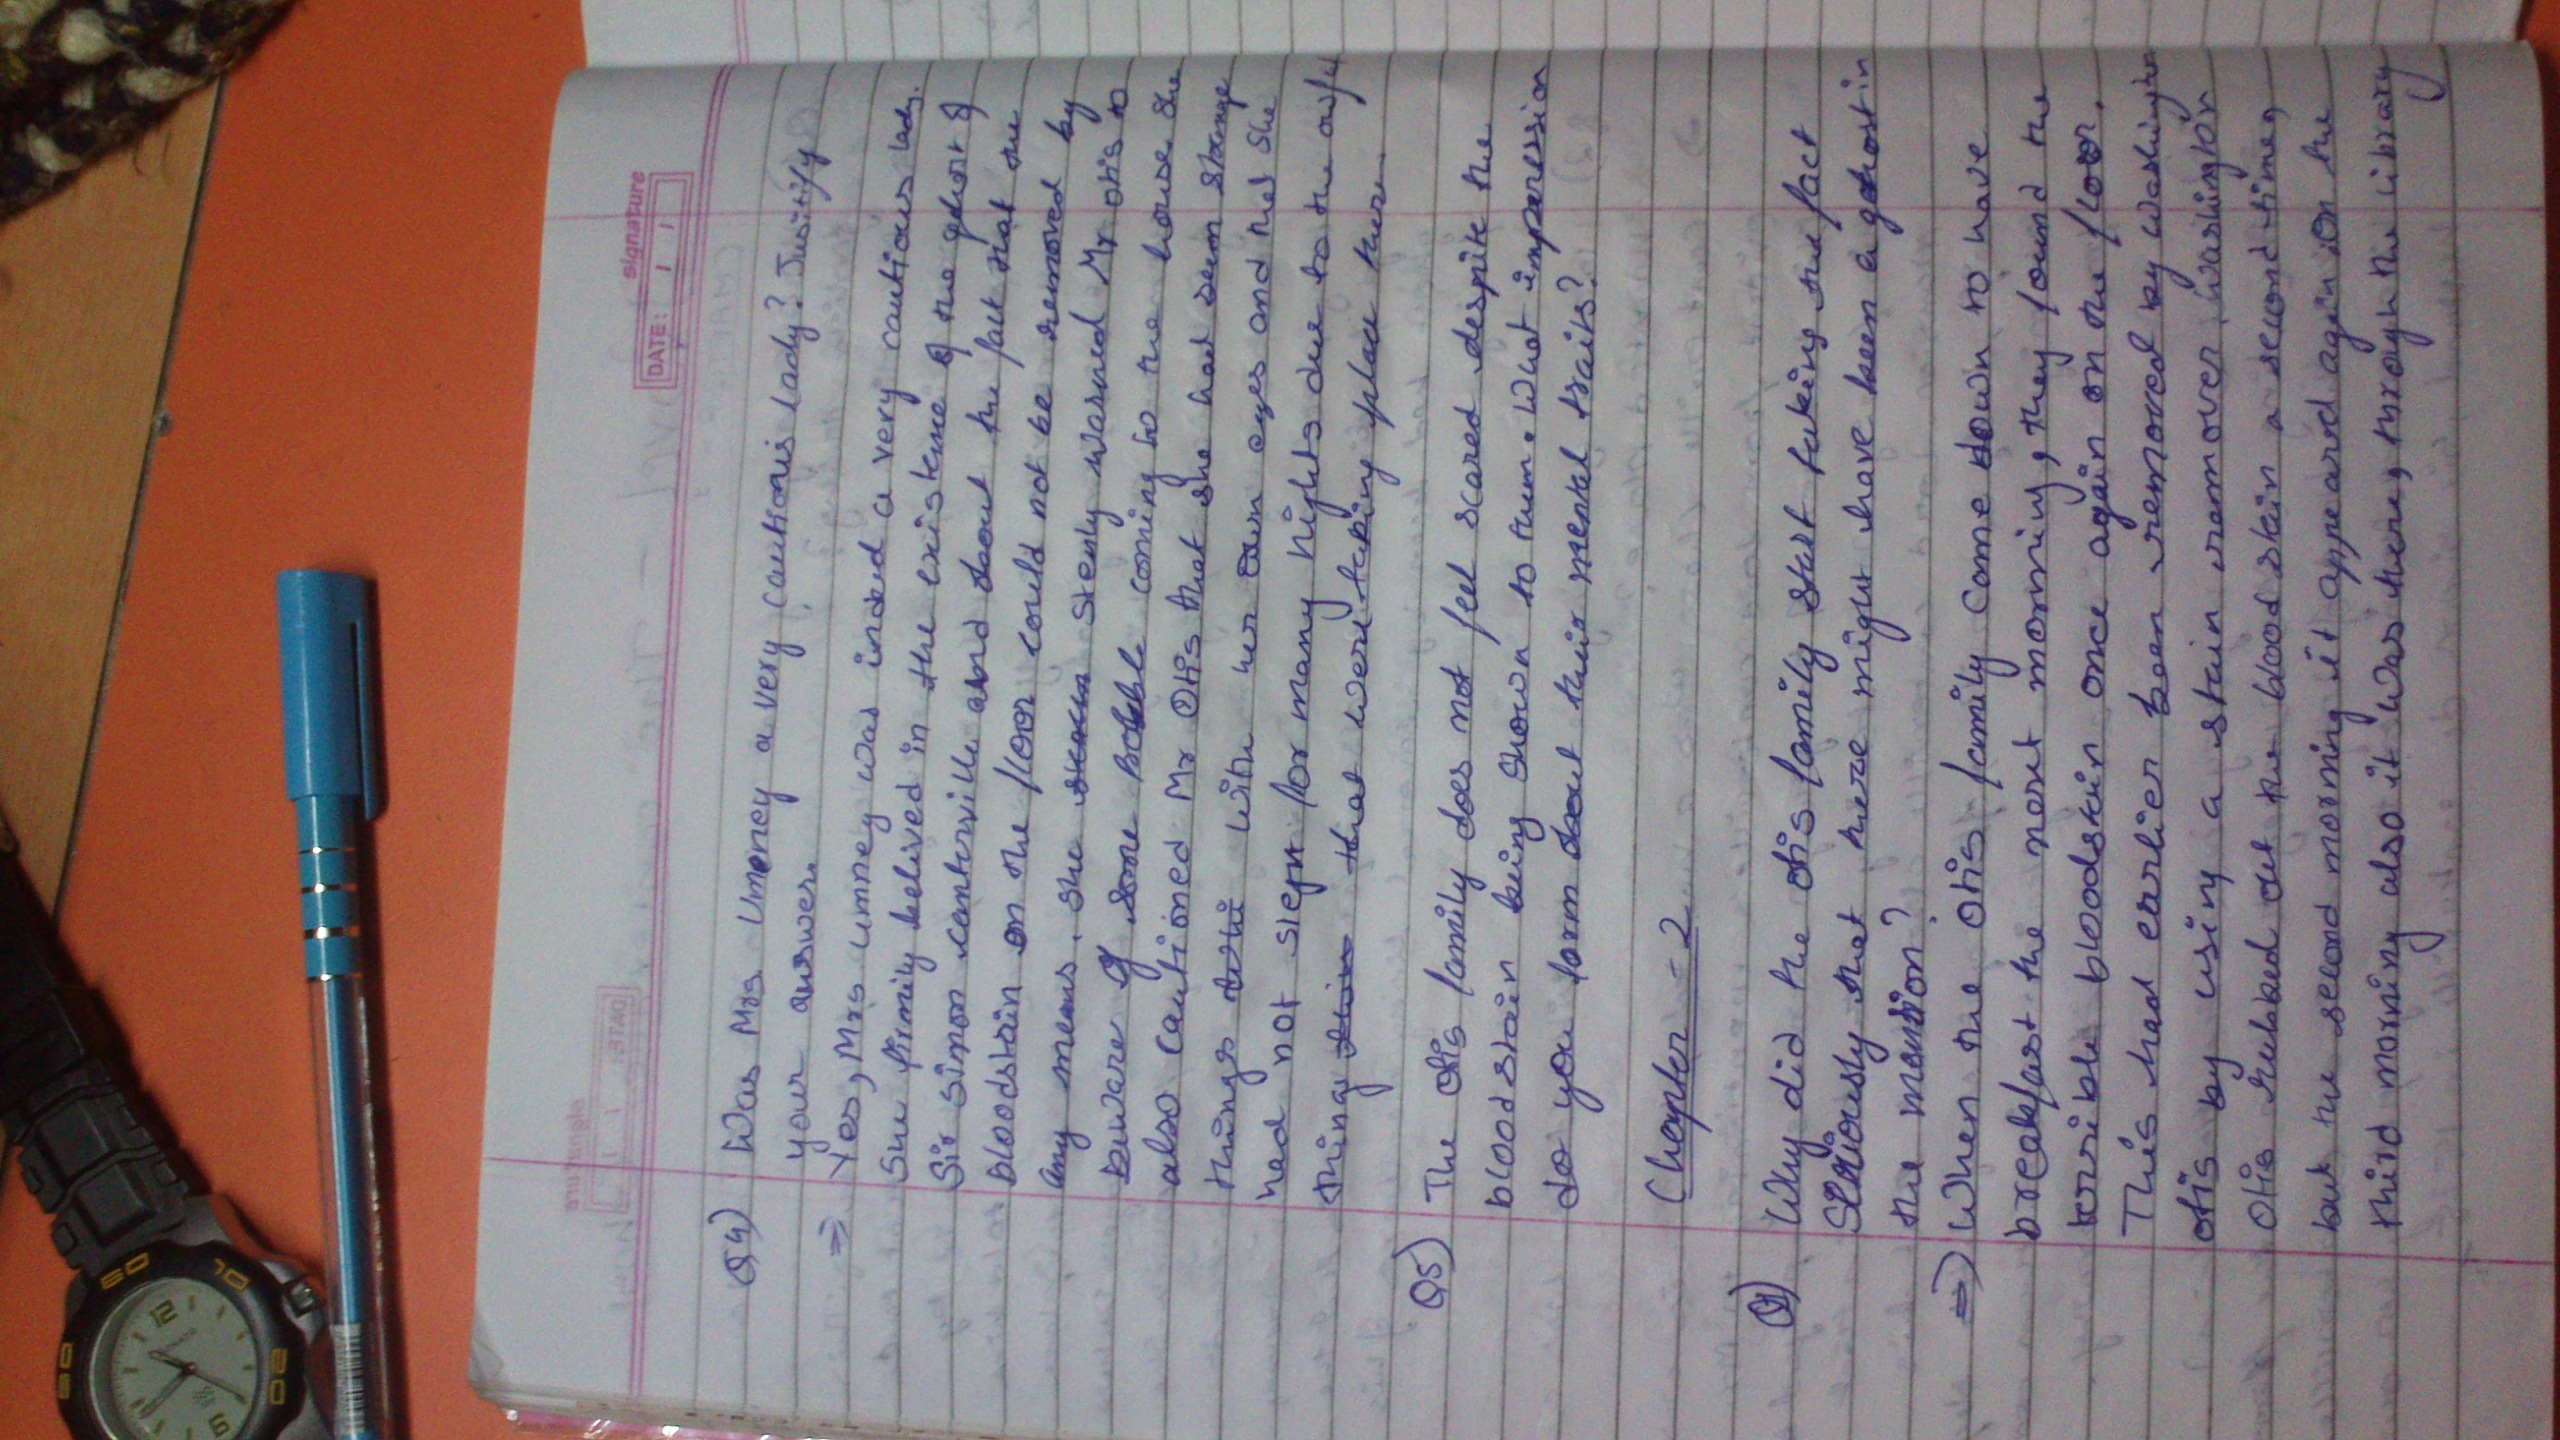 signature
DATE: / /
Q4) Was Mrs Umoney a very cautious lady? Justify
your answer.
⇒ Yes, Mrs Umney was indeed a very cautious lady.
She firmily belived in the existence of the gohost of
Sir Simon Canterville and about the fact that the
bloodstain on the floor could not be removed by
any means. She stenly warned Mr Otis to
beware of some coming to the house. She
also cautioned Mr Otis that she had seem strange
things with her own eyes and that she
had not slept for many nights due to the awful
things that were taking place there
Q5) The Otis family does not feel scared despite the
bloodstain being shown to them. What imperession
do you form about their mental traits?
Chapter - 2
Why did the Otis family start taking the fact
Seriously that there might have been a gohost in
the mansion?
⇒ When the Otis family come down to have
breakfast the next morning, they found the
terrible bloodstain once again on the floor.
This had earlier been removed by Washington
Otis by using a stain remover. Washington
Otis rubbed out the blood stain a second time,
but the second morning it appeared again. On the
third morning also it was there, through the library
50
10
20
12
6